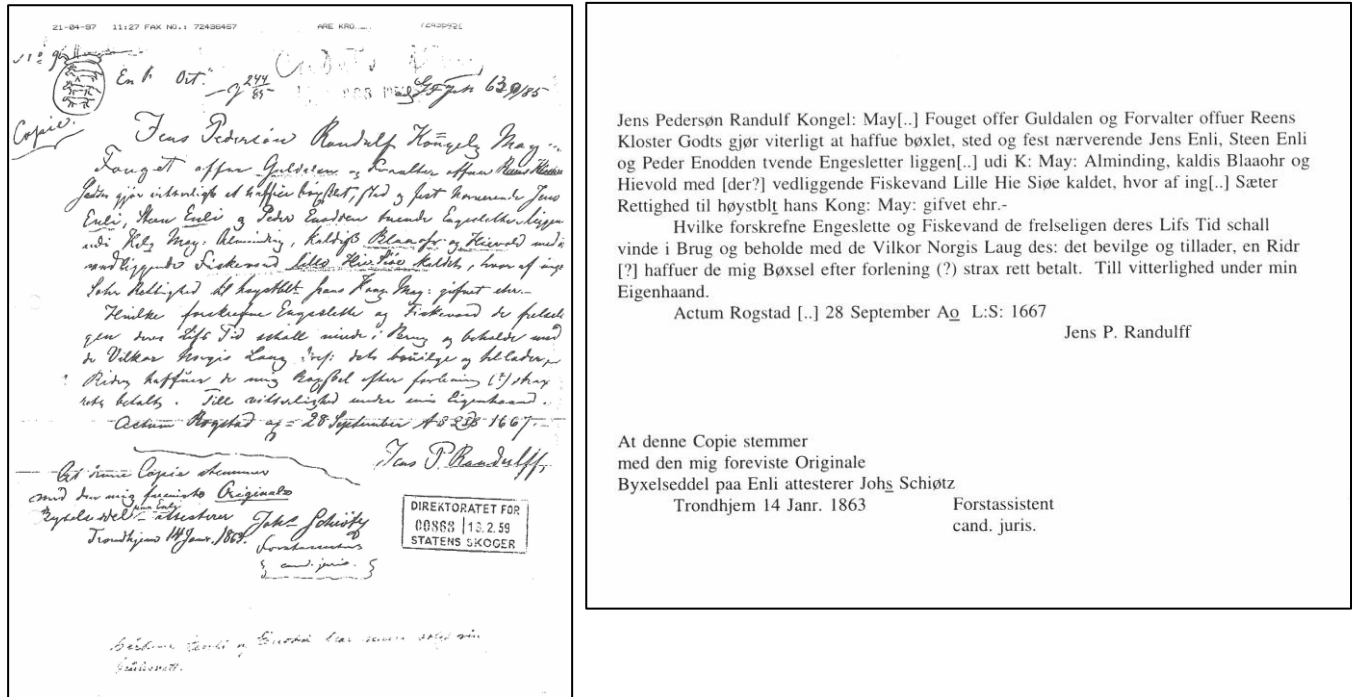 21-04-97 11:27 FAX NO.: 72436457 ARE KRO
En K Ort.
244
85
639/85
Copie
Jens Pedersön Randulf Kongely May
Fouget offer Guldalen og Forvalter offuer Reins Kloster
Godts gjör vitterligt at haffue bøxlet, sted og fest nærverende Jens
Enli, Steen Enli og Peder Enodden tvende Engesletter liggen
udi Kong May: Alminding, kaldiss Blaaohr og Hievold med
vedliggende Fiskevand Lille Hie Siöe kaldet, hvor af ing
Sæter Rettighed til høystblt hans Kong: May: gifvet ehr.-
Hvilke forskrefne Engeslette og Fiskevand de frelseli
gen deres Lifs Tid schall vinde i Brug og beholde med
de Vilkor Norgis Laug des: det bevilge og tillader,
Ridr haffuer de mig Bøxsel efter forlening (?) strax
rett betalt. Till vitterlighed under min Eigenhaand.
Actum Rogstad 28 September 1667.
Jens P. Randulff,
At denne Copie stemmer
med den mig foreviste Originale
Byxelseddel paa Enli attesterer Johs Schiøtz
Trondhjem 14 Janr. 1863. Forstassistent
cand. juris.
DIREKTORATET FOR
00868 13.2.59
STATENS SKOGER
Jens Pedersøn Randulf Kongel: May[..] Fouget offer Guldalen og Forvalter offuer Reens
Kloster Godts gjør viterligt at haffue bøxlet, sted og fest nærverende Jens Enli, Steen Enli
og Peder Enodden tvende Engesletter liggen[..] udi K: May: Alminding, kaldis Blaaohr og
Hievold med [der?] vedliggende Fiskevand Lille Hie Siøe kaldet, hvor af ing[..] Sæter
Rettighed til høystblt hans Kong: May: gifvet ehr.-
Hvilke forskrefne Engeslette og Fiskevand de frelseligen deres Lifs Tid schall
vinde i Brug og beholde med de Vilkor Norgis Laug des: det bevilge og tillader, en Ridr
[?] haffuer de mig Bøxsel efter forlening (?) strax rett betalt. Till vitterlighed under min
Eigenhaand.
Actum Rogstad [..] 28 September Ao L:S: 1667
Jens P. Randulff
At denne Copie stemmer
med den mig foreviste Originale
Byxelseddel paa Enli attesterer Johs Schiøtz
Trondhjem 14 Janr. 1863 Forstassistent
cand. juris.